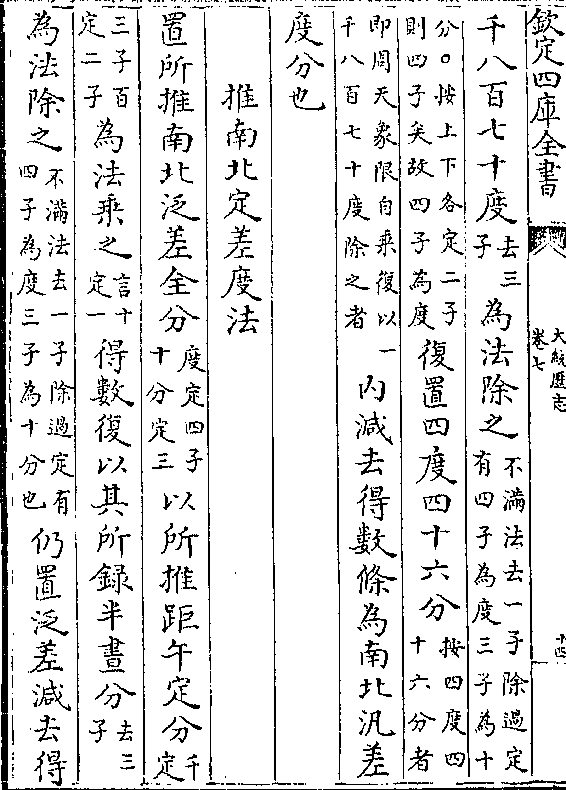 欽定四庫全書
大統歴志
卷七
十四
千八百七十度去三子為法除之不滿法去一子除過定有四子為度三子為十
分○按上下各定二子則四子矣故四子為度復置四度四十六分按四度四十六分者
即周天象限自乘復以一千八百七十度除之者內減去得數條為南北汎差
度分也
推南北定差度法
置所推南北泛差全分度定四子十分定三以所推距午定分千定
三子百定二子為法乘之言十定一得數復以其所録半晝分去三子
為法除之不滿法去一子除過定有四子為度三子為十分也仍置泛差減去得